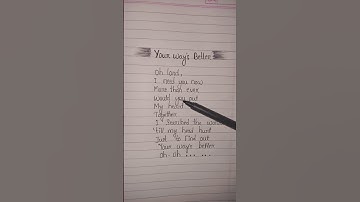 Your way's Better
Oh Lord,
I need you now
More than ever
Would you put
My heart
Together
I searched the world
'till my head hurt
Just to find out
Your way's better
Oh-oh ... ... ...